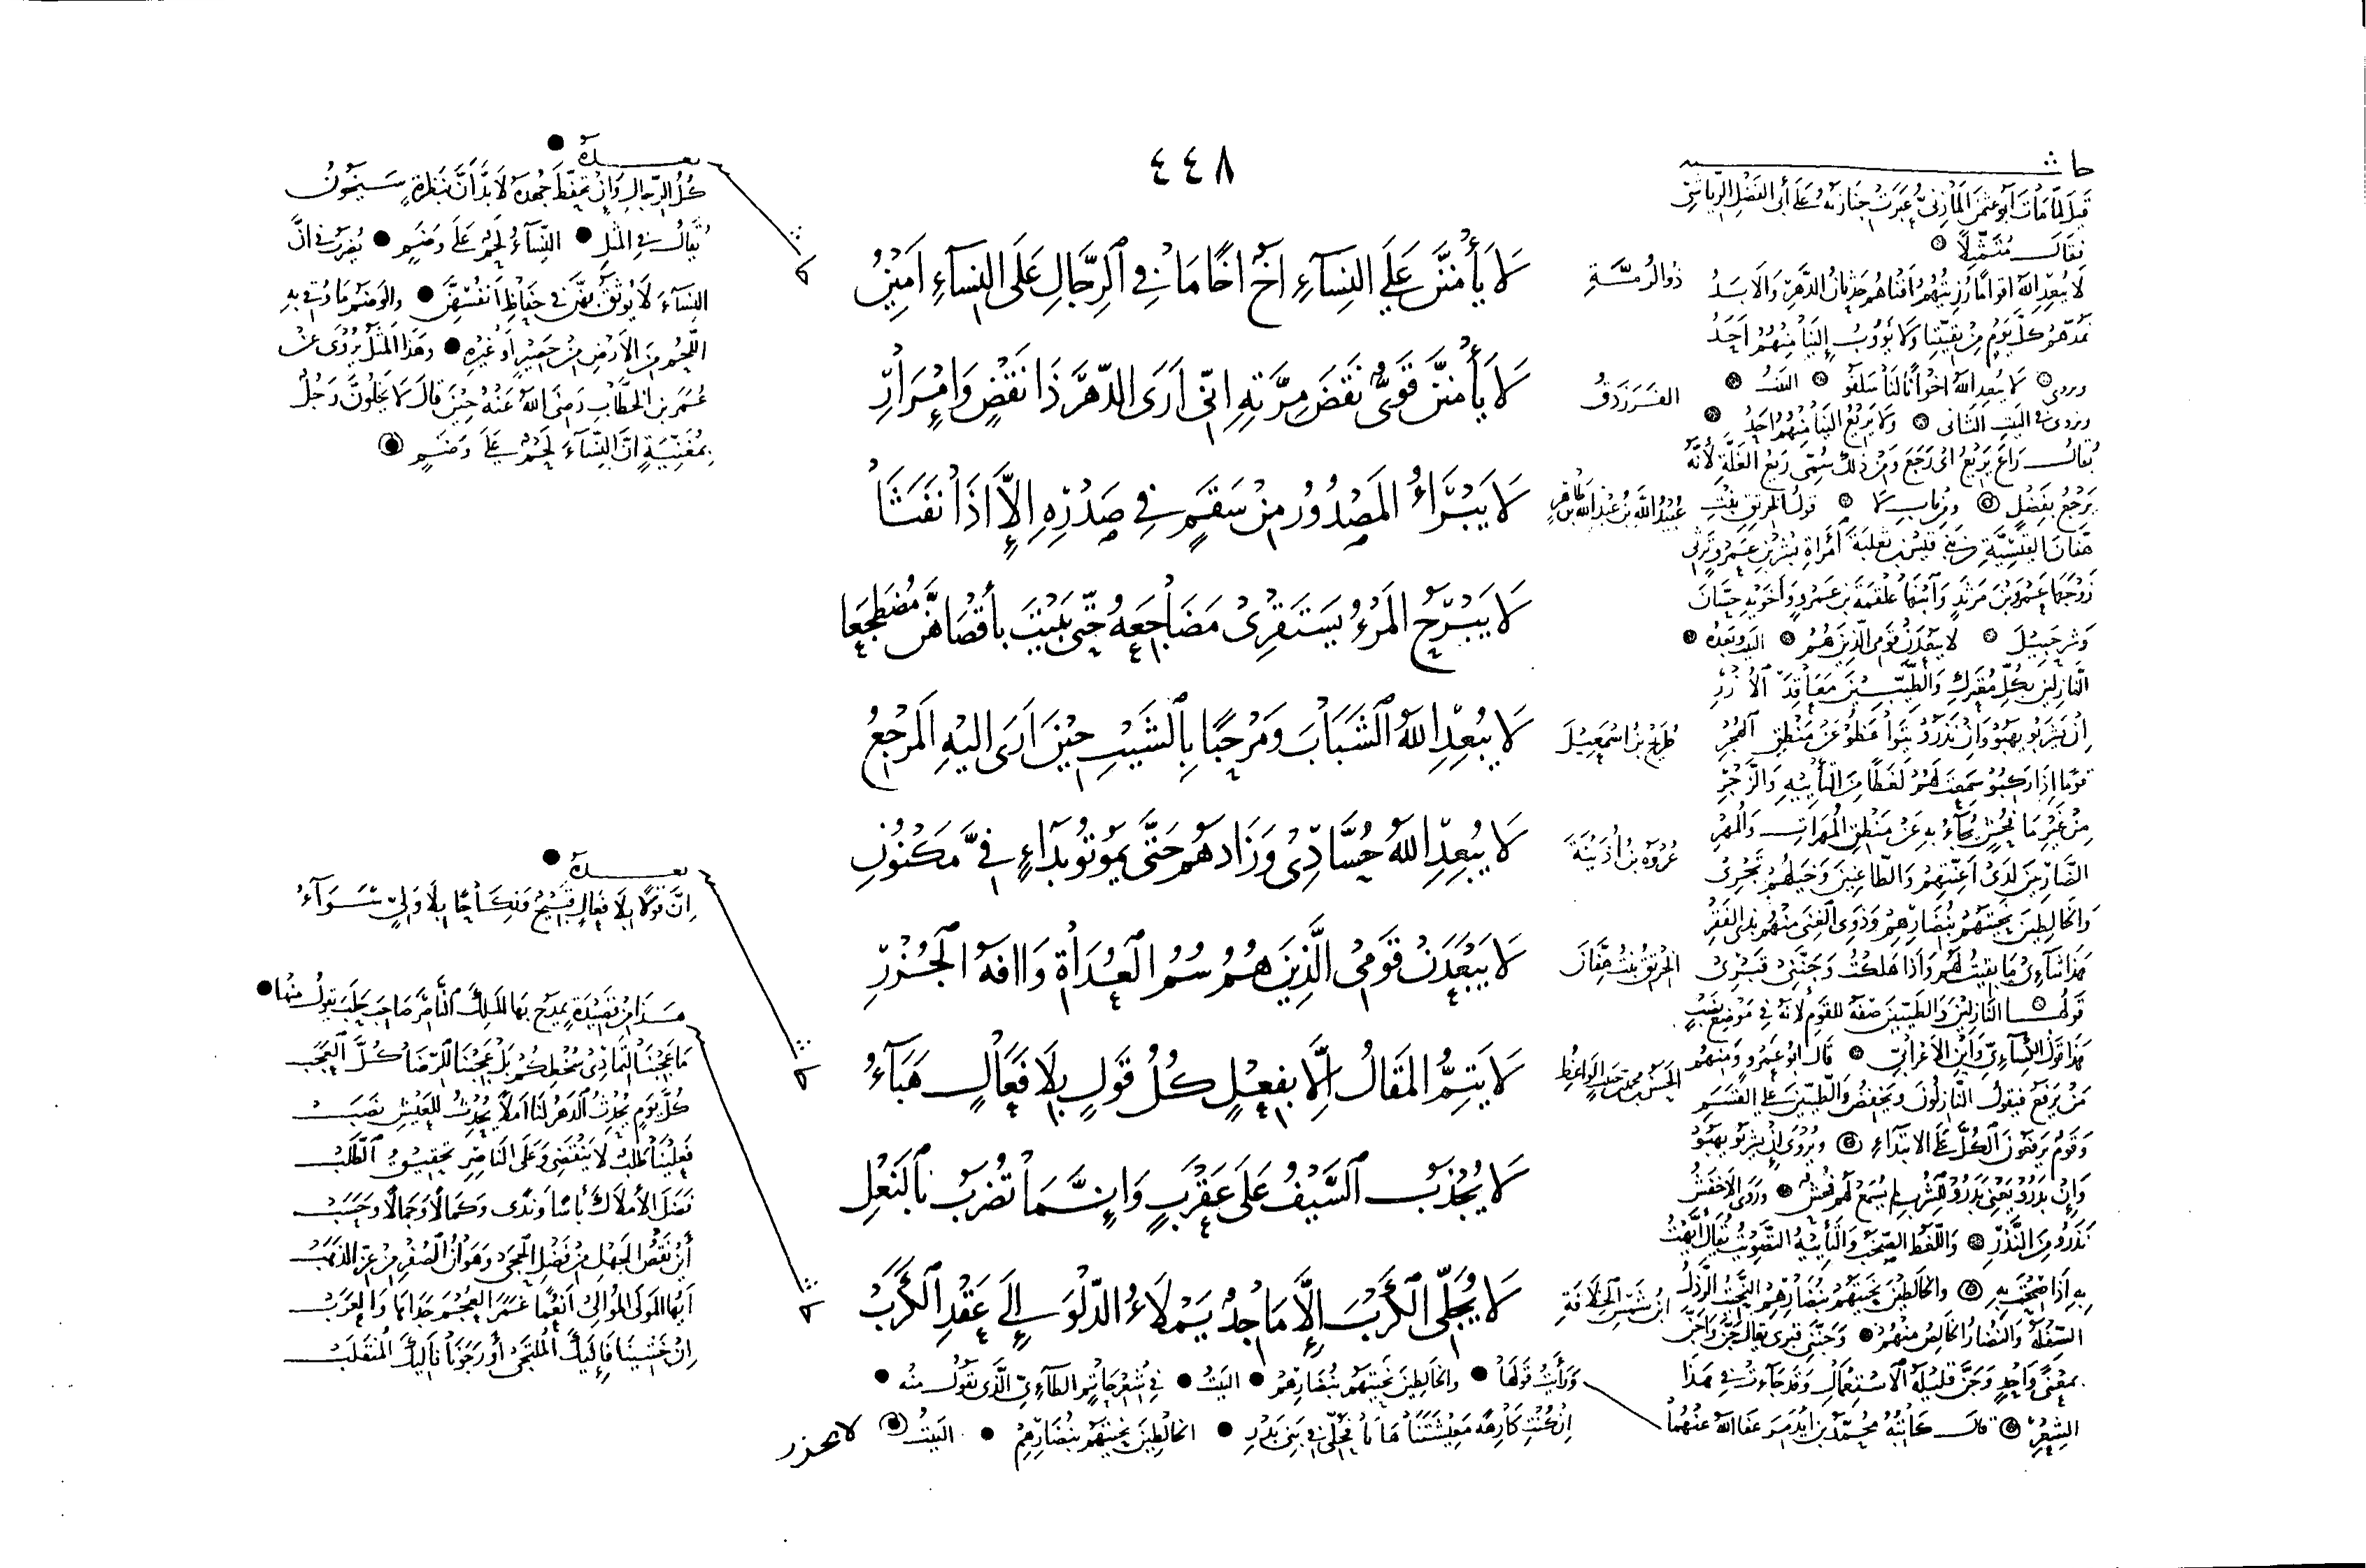 ٤٤٨
لا يأمنن على النساء أخ أخا ما في الرجال على النساء أمين
ذو الرمة
لا يأمنن قوي نقض مرته إني أرى الدهر ذا نقض وإمرار
الفرزدق
لا يبرأ المصدور من سقم في صدره إلا إذا نفثا
عبيد الله بن عبد الله بن طاهر
لا يبرح المرء يستقري مضاجعه حتى يبيت بأقصاهن مضطجعا
لا يبعد الله الشباب ومرحبا بالشيب حين أرى إليه المرجع
طريح بن إسمعيل
لا يبعد الله حسادي وزادهم حتى يموتو بداء في مكنون
عروة بن أذينة
لا يبعدن قومي الذين هم سم العداة وآفة الجزر
الخرنق بنت هفان
لا يتم المقال إلا بفعل كل قول بلا فعال هباء
لا يجذب السيف على عقرب وإنما تضرب بالنعل
لا يجلي الكرب إلا ماجد يملاء الدلو إلى عقد الكرب
ابن شمس الخلافة
حاشية
قيل لما مات أبو عثمن المازني عبرت جنازته على أبي الفضل الرياشي
فقال متمثلا
لا يبعد الله أقواما رزيتهم أفناهم حدثان الدهر والأبد
نمدهم كل يوم من بقيتنا ولا يؤوب إلينا منهم أحد
ويروى لا يبعد الله إخوانا لنا سلفو البيت
ويروى في البيت الثاني ولا يريع إلينا منهم أحد
يقال راع يريع أي رجع ومن ذلك سمي ريع الغلة لأنه
يرجع بفضل ومن باب لا قول الخرنق بنت
هفان القيسية من بني قيس بن ثعلبة امرأة بشر بن عمرو ترثي
زوجها عمرو بن مرثد وابنها علقمة بن عمرو وأخويه حسان
وشرحبيل لا يبعدن قومي الذين هم البيت وبعده
النازلين بكل معترك والطيبين معاقد الأزر
إن يشربو يهبو وإن يذرو يتواعظو عن منطق الهجر
قوما إذا ركبو سمعت لهم لغطا من التأييه والزجر
من غير ما فحش يجاء به عن منطق المهرات والمهر
الضاربين لدى أعنتهم والطاعنين وخيلهم تجري
والخالطين نحيتهم بنضارهم وذوي الغنى منهم بذي الفقر
هذا ثنائي ما بقيت لهم وإذا هلكت وجنني قبري
قولها النازلين والطيبين صفة للقوم لأنه في موضع نصب
هذا قول الكسائي وابن الأعرابي قال أبو عمرو ومنهم
من يرفع فيقول النازلون ويخفض والطيبين على القسم
وقوم يرفعون الكل على الابتداء ويروى إن يشربو يهبو
به إذا صحت به والخالطين نحيتهم بنضارهم النحيت الرذل
السفلة والنضار الخالص منهم وجنني قبري يقال جن وأجن
بمعنى واحد وجن قليلة الاستعمال وقد جاءت في هذا
الشعر قال كاتبه محمد بن أيدمر عفا الله عنهما
ورأيت قولها والخالطين نحيتهم بنضارهم البيت في شعر حاتم الطائي الذي يقول منه
إن كنت كارهة معيشتنا هاتا فحلي في بني بدر الخالطين نحيتهم بنضارهم البيت
لا يحذر
بعده
كل الرجال وإن تحفظ جهده لا بد أن بنظرة سيخون
يقال في المثل النساء لحم على وضم
النساء لا يوثق بهن في حفاظ أنفسهن والوضم ما وقي به
اللحم من الأرض من حصير أو غيره وهذا المثل يروى عن
عمر بن الخطاب رضي الله عنه حين قال لا يخلون رجل
بمغيبة إن النساء لحم على وضم
بعده
إن قولا بلا فعال قبيح ونكاحا بلا ولي سواء
هذا من قصيدة يمدح بها الملك الناصر صاحب حلب يقول منها
كل يوم يحدث الدهر لنا أملا يحدث للعيش نصب
فعلينا طلب لا ينقضي وعلى الناصر تحقيق الطلب
فضل الأملاك بأسا وندى وكمالا وجمالا وحسب
أين نقص الجهل من فضل الحجى وهوان الصفر من عز الذهب
أيها المولى الموالي أنعما غمر العجم جداها والعرب
إن خشينا فإليك الملتجى أو رجونا فإليك المنقلب